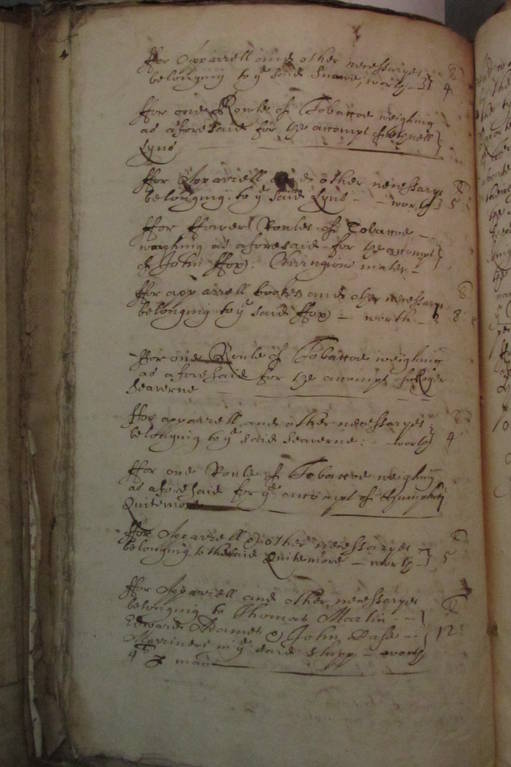 ffor Apparrell and other necessaryes
belonging to ye said worth 4
ffor one Roule of Tobaccoe weighing
as aforesaid for the accompt of
Lyne
ffor Apparrell other necessarye
belonging to ye said Lyne worth 5
ffor Roules of Tobaccoe
weighing as aforesaid for the accompt
of John ffox: mate
ffor apparrell bookes and other necessarye
belonging to ye said ffox worth 8
ffor one Roule of Tobaccoe weighing
as aforesaid for the accompt of
Seaverne
ffor apparrell and other necessaryes
belonging to ye said Seaverne: worth 4
ffor one Roule of Tobaccoe weighing
as aforesaid for ye accompt of Humphry
Quitemore
ffor Apparrell & other necessaryes
belonging to the said Quitemore worth 5
ffor Apparrell and other necessaryes
belonging to Thomas Martin
Edward & John 12
Marriners in ye said Shipp worth
4 man